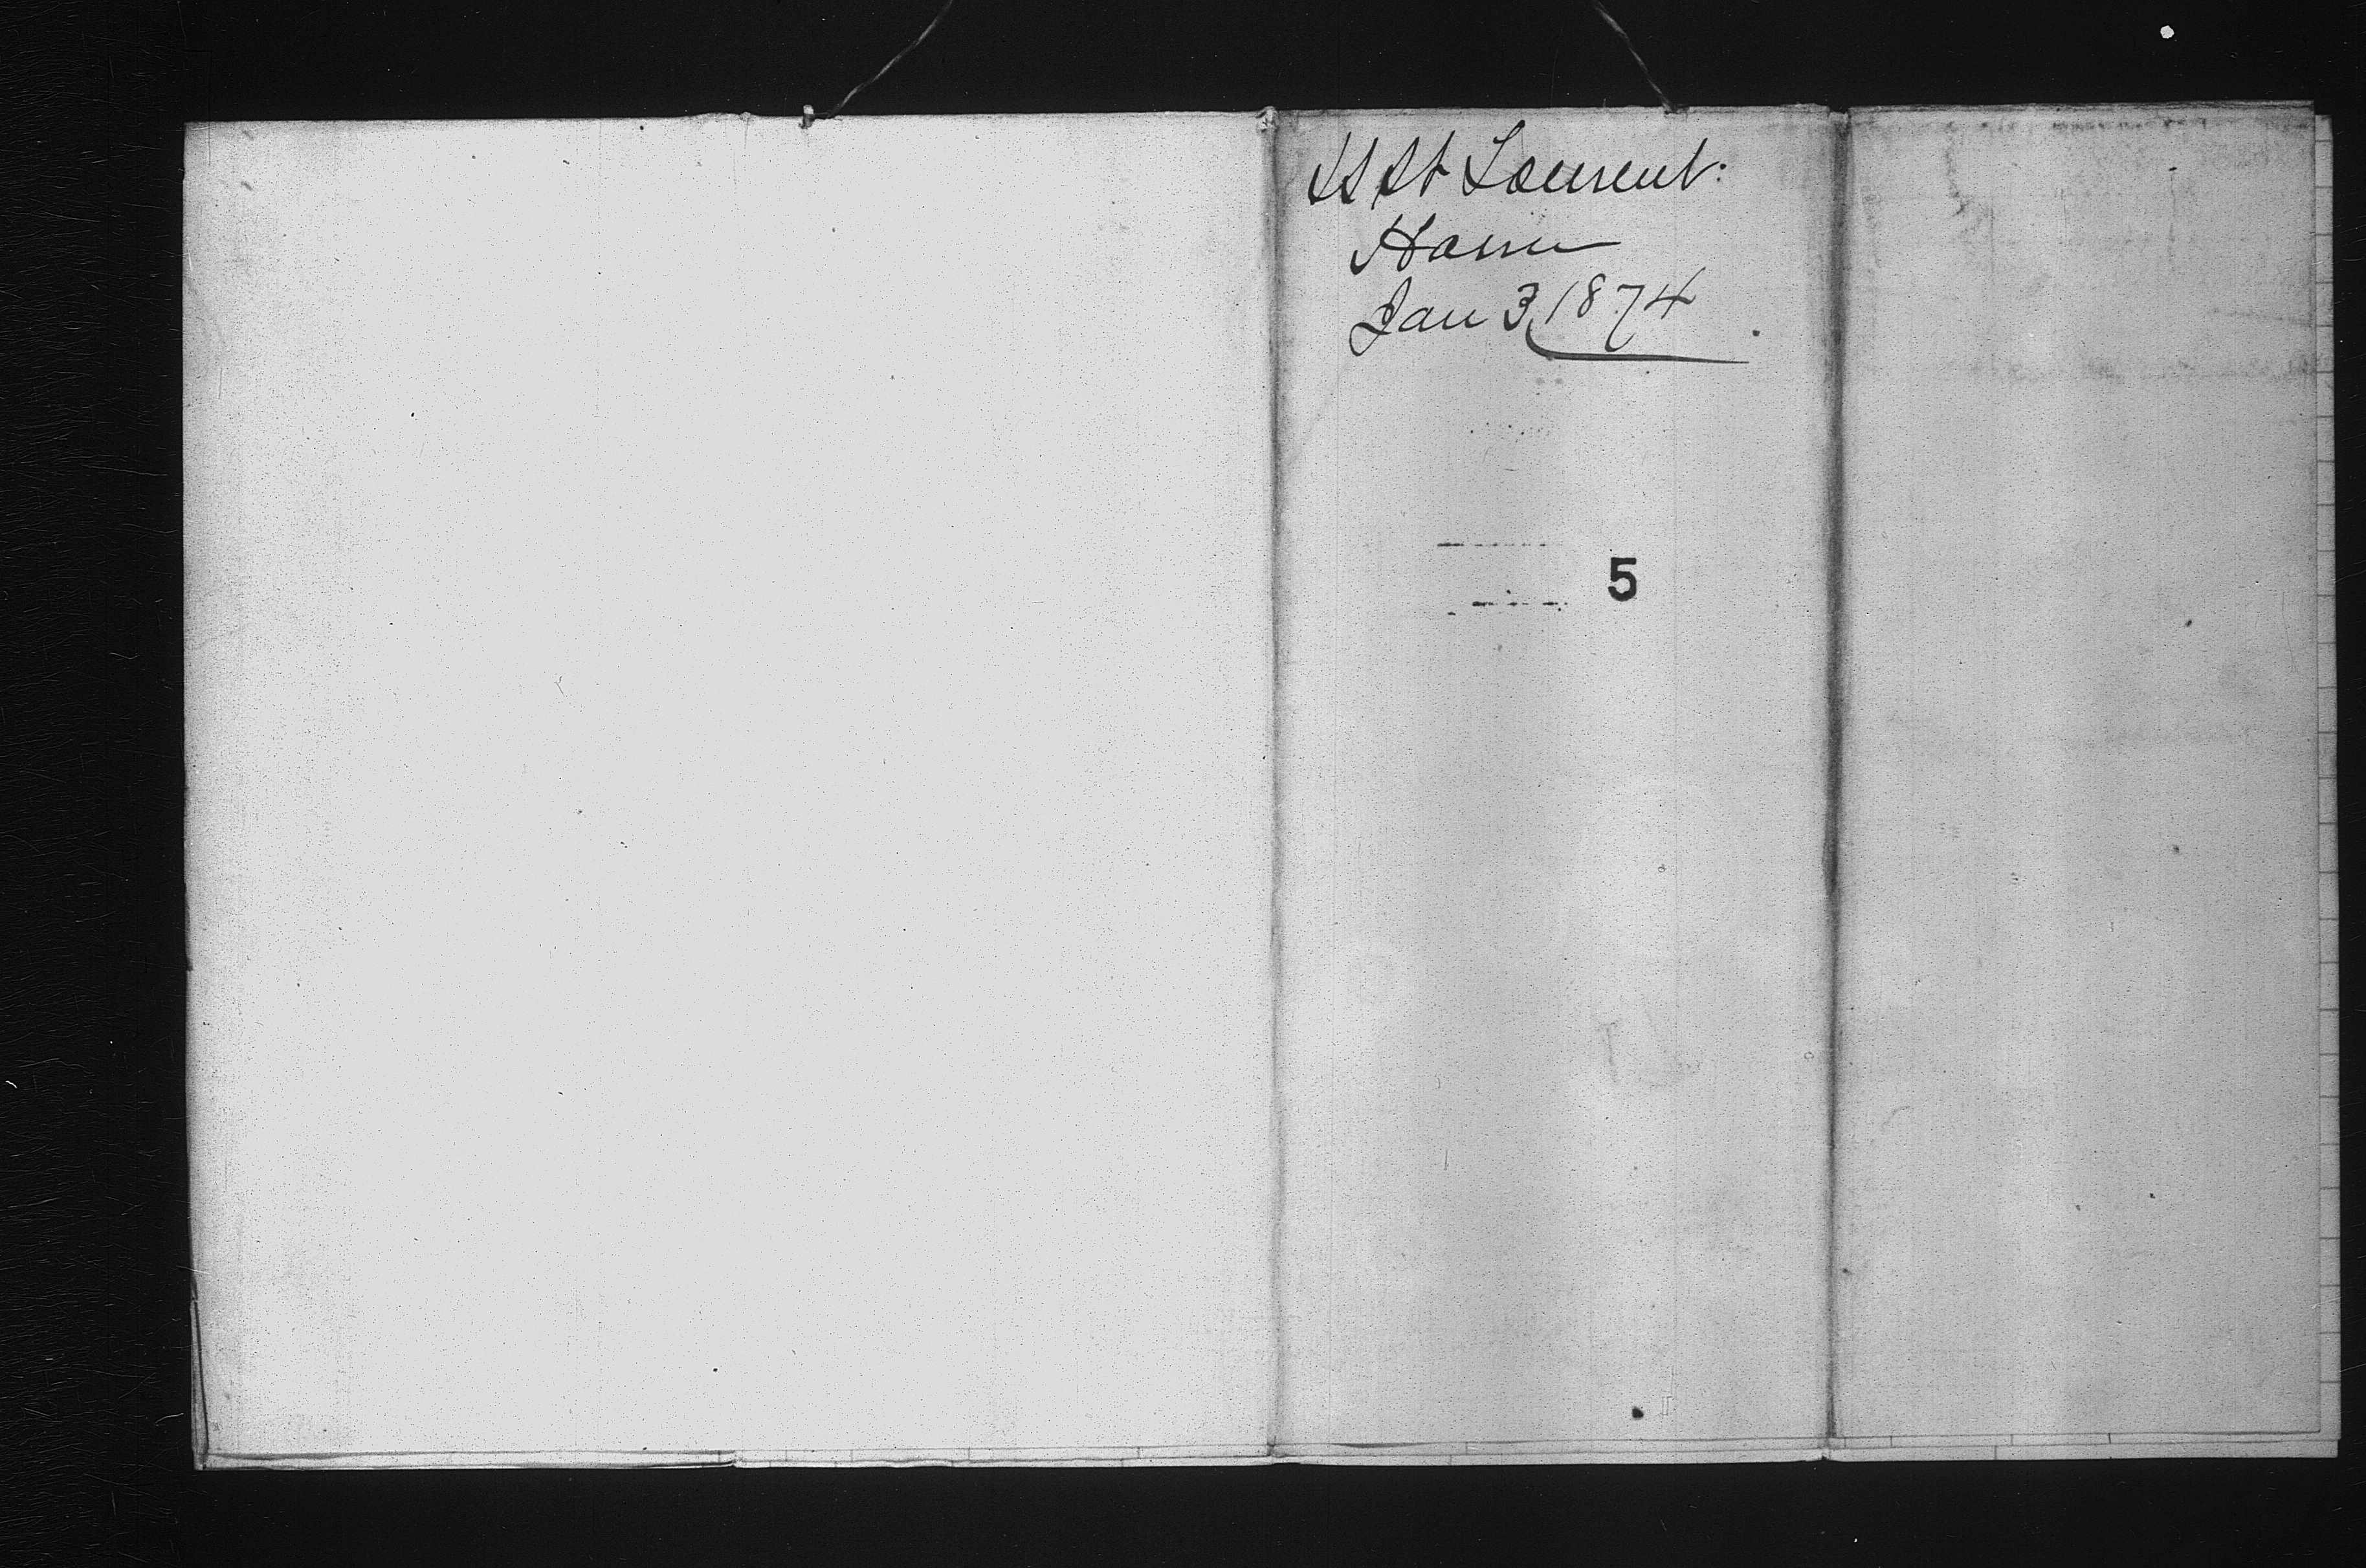 SS St Laurent:
Havre
Jan 3, 1874
5